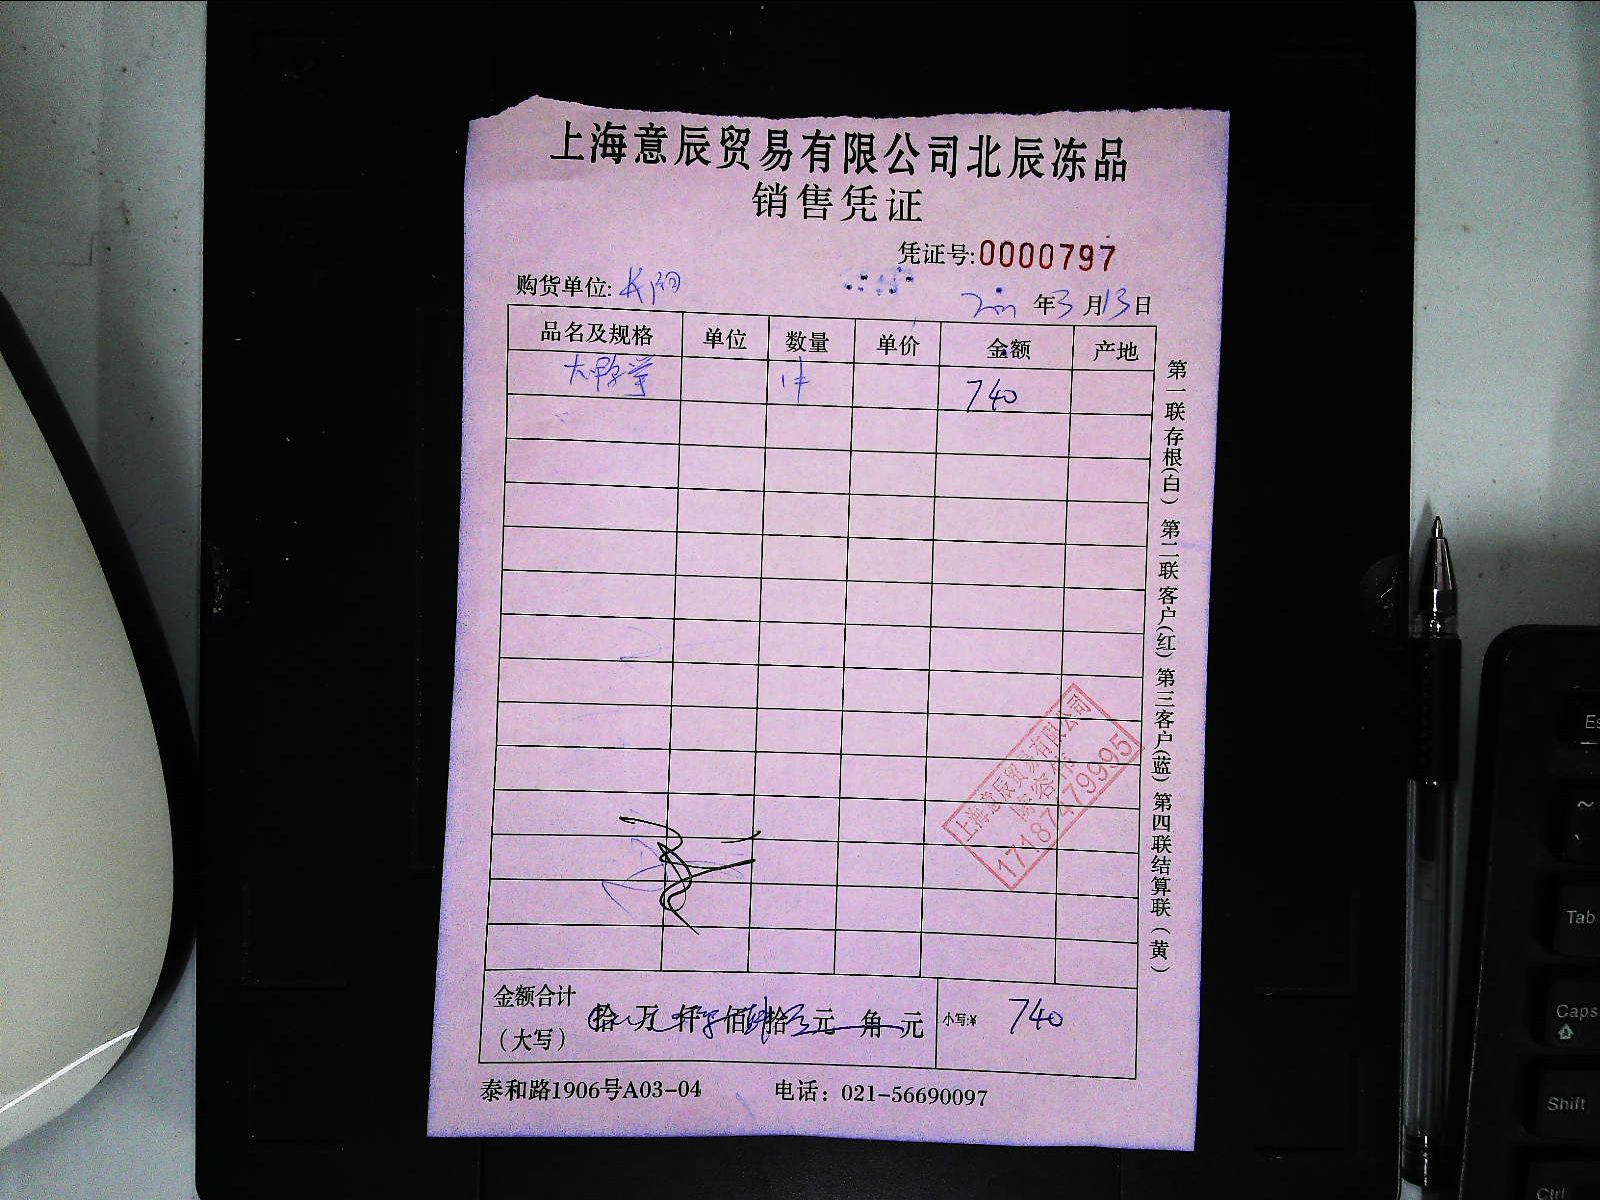 上海意辰贸易有限公司北辰冻品
销售凭证
凭证号:0000797
购货单位:
年3月13日
品名及规格 单位 数量 单价 金额 产地
大鸭掌 1件 740
第一联存根(白) 第二联客户(红) 第三客户(蓝) 第四联结算联(黄)
上海意辰贸易有限公司
17187479995
金额合计
(大写)
拾万仟佰拾元角元
小写:¥ 740
泰和路1906号A03-04 电话:021-56690097
Es
~
Tab
Caps
Shift
Ctrl